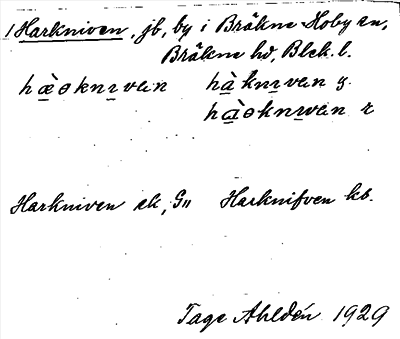 1 Harkniven, jb, by i Bräkne Hoby sn,
Bräkne hd, Blek. l.
hæ̀ɵknɪvɐn hàknɪvɐn y.
hàɵknɪvɐn r
Harkniven ek, G" Harknifven kb.
Tage Ahldén 1929